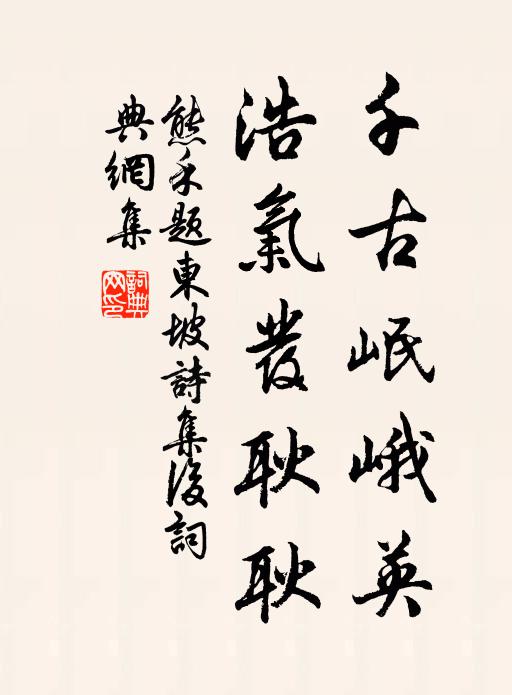 千古岷峨英
浩氣發耿耿
熊禾題東坡詩集後詞
典網集
詞典
网印